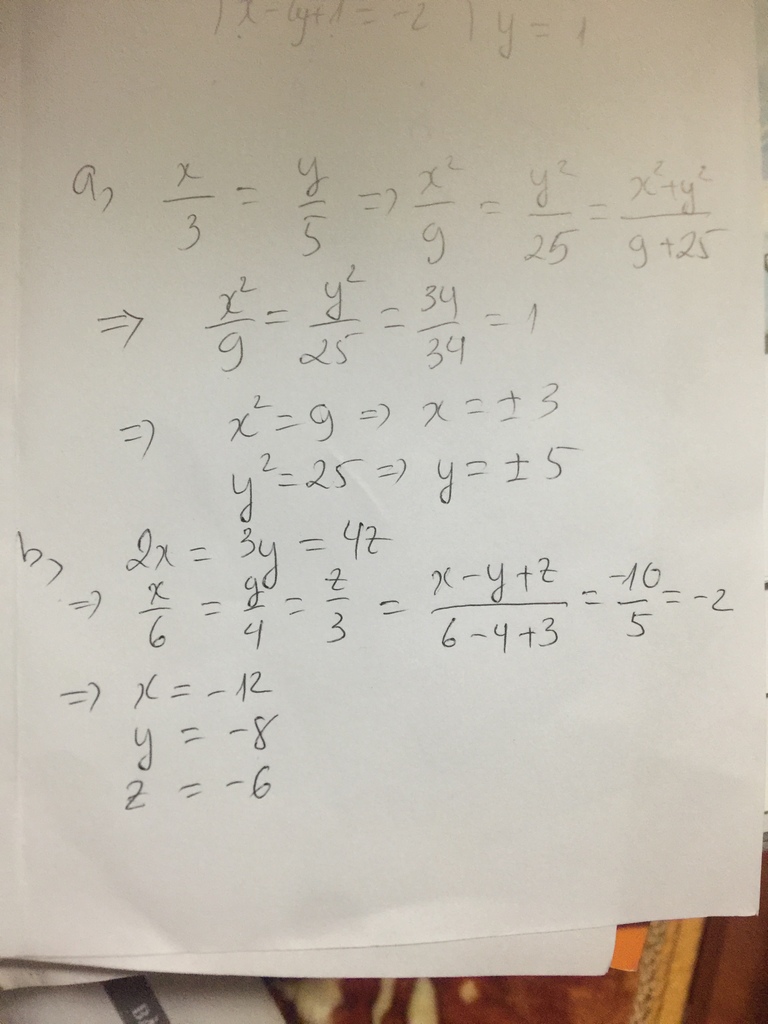 x - = -2 y = 1
a, x/3 = y/5 => x²/9 = y²/25 = x²+y²/9+25
=> x²/9 = y²/25 = 34/34 = 1
=> x² = 9 => x = ± 3
y² = 25 => y = ± 5
b, 2x = 3y = 4z
=> x/6 = y/4 = z/3 = x-y+z/6-4+3 = -10/5 = -2
=> x = -12
y = -8
z = -6